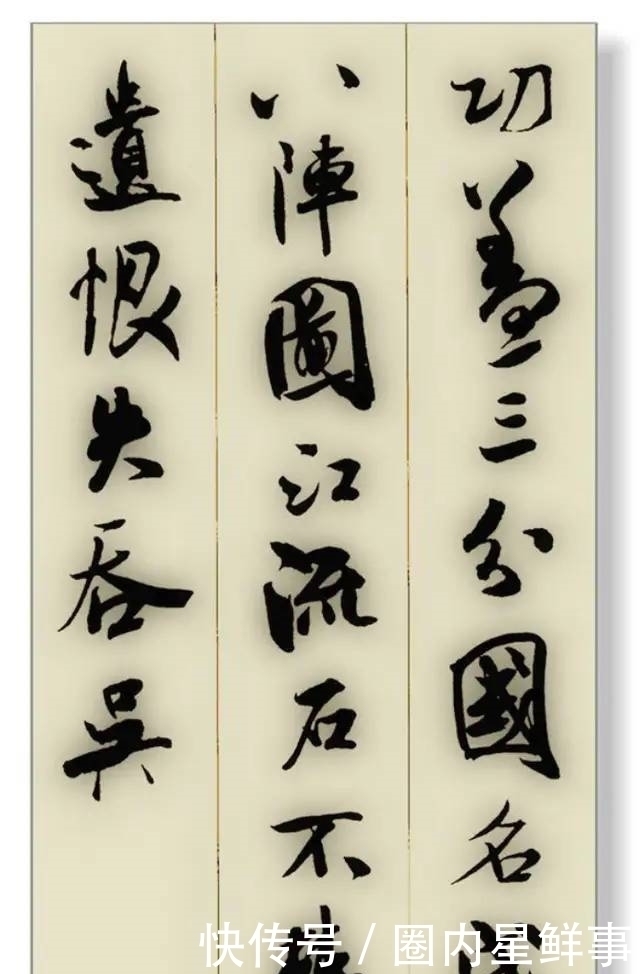 功蓋三分國名
八陣圖江流石不
遺恨失吞吳
快传号 / 圈内星鲜事